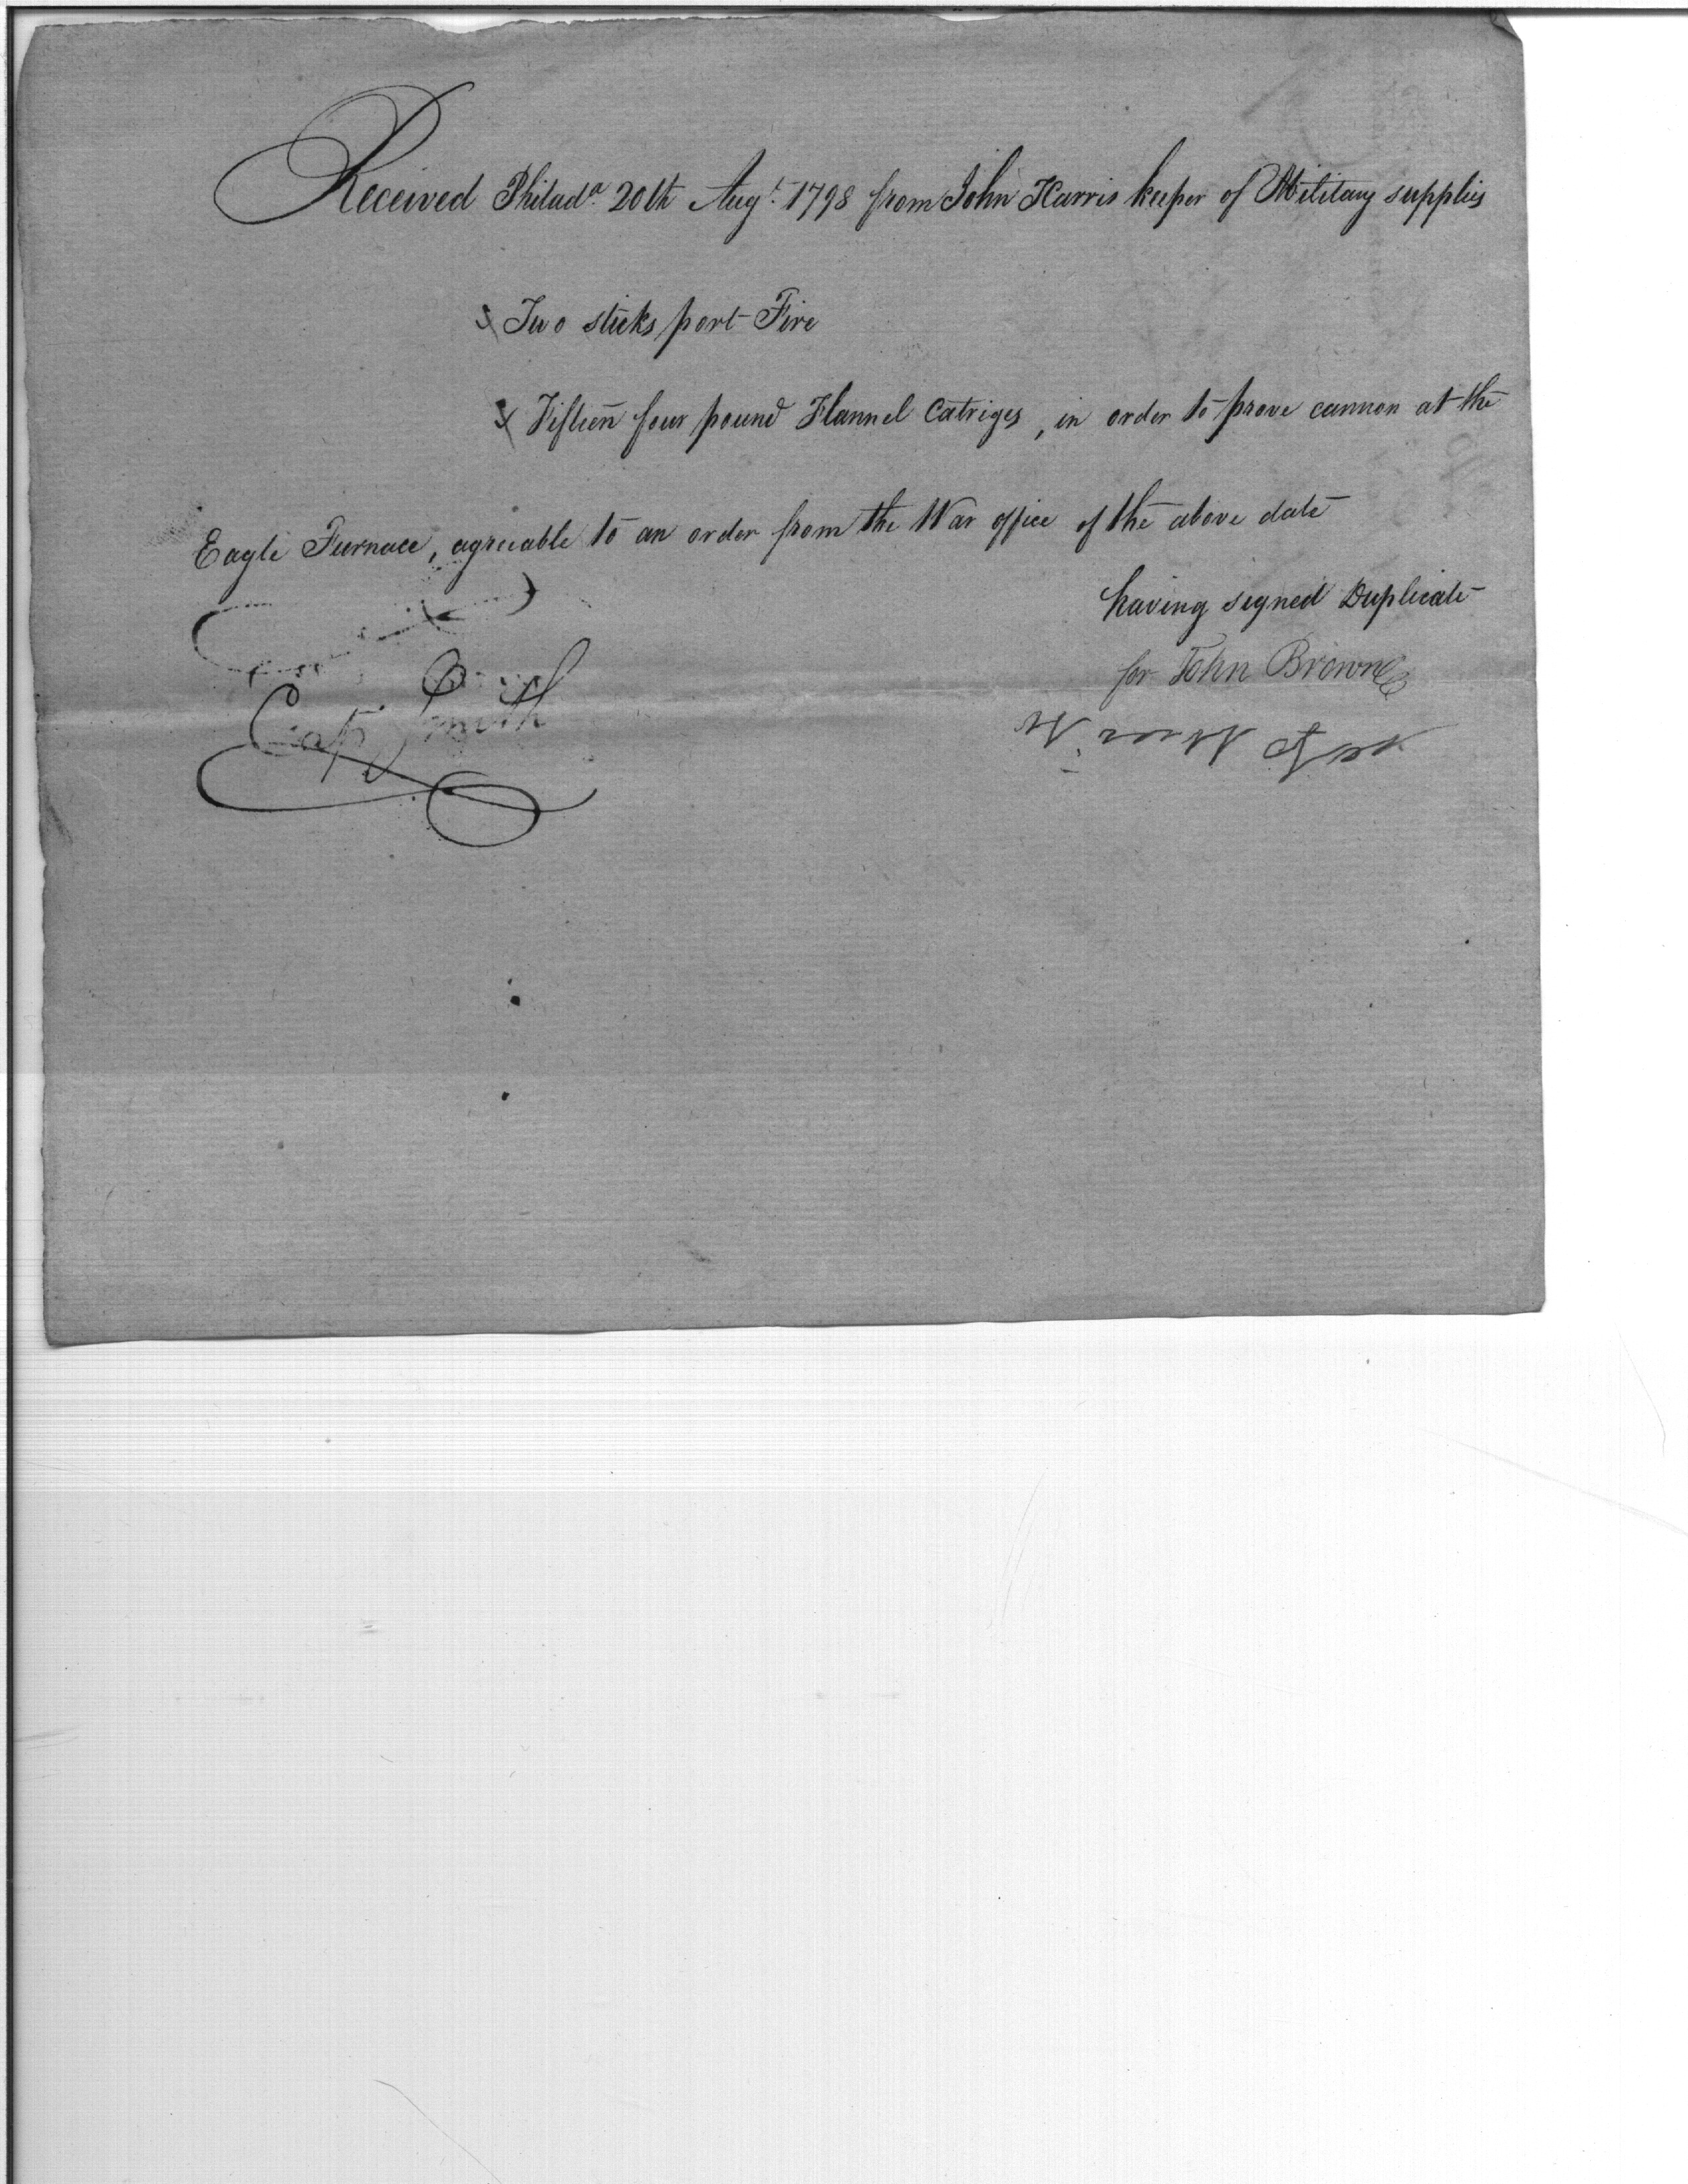 Received Philada. 20th Augt. 1798 from John Harris keeper of Military supplies
Two sticks port Fire
Fifteen four pound Flannel Catriges, in order to prove cannon at the
Eagle Furnace, agreeable to an order from the War office of the above date
having signed Duplicate
for John Brown
Cap Smith